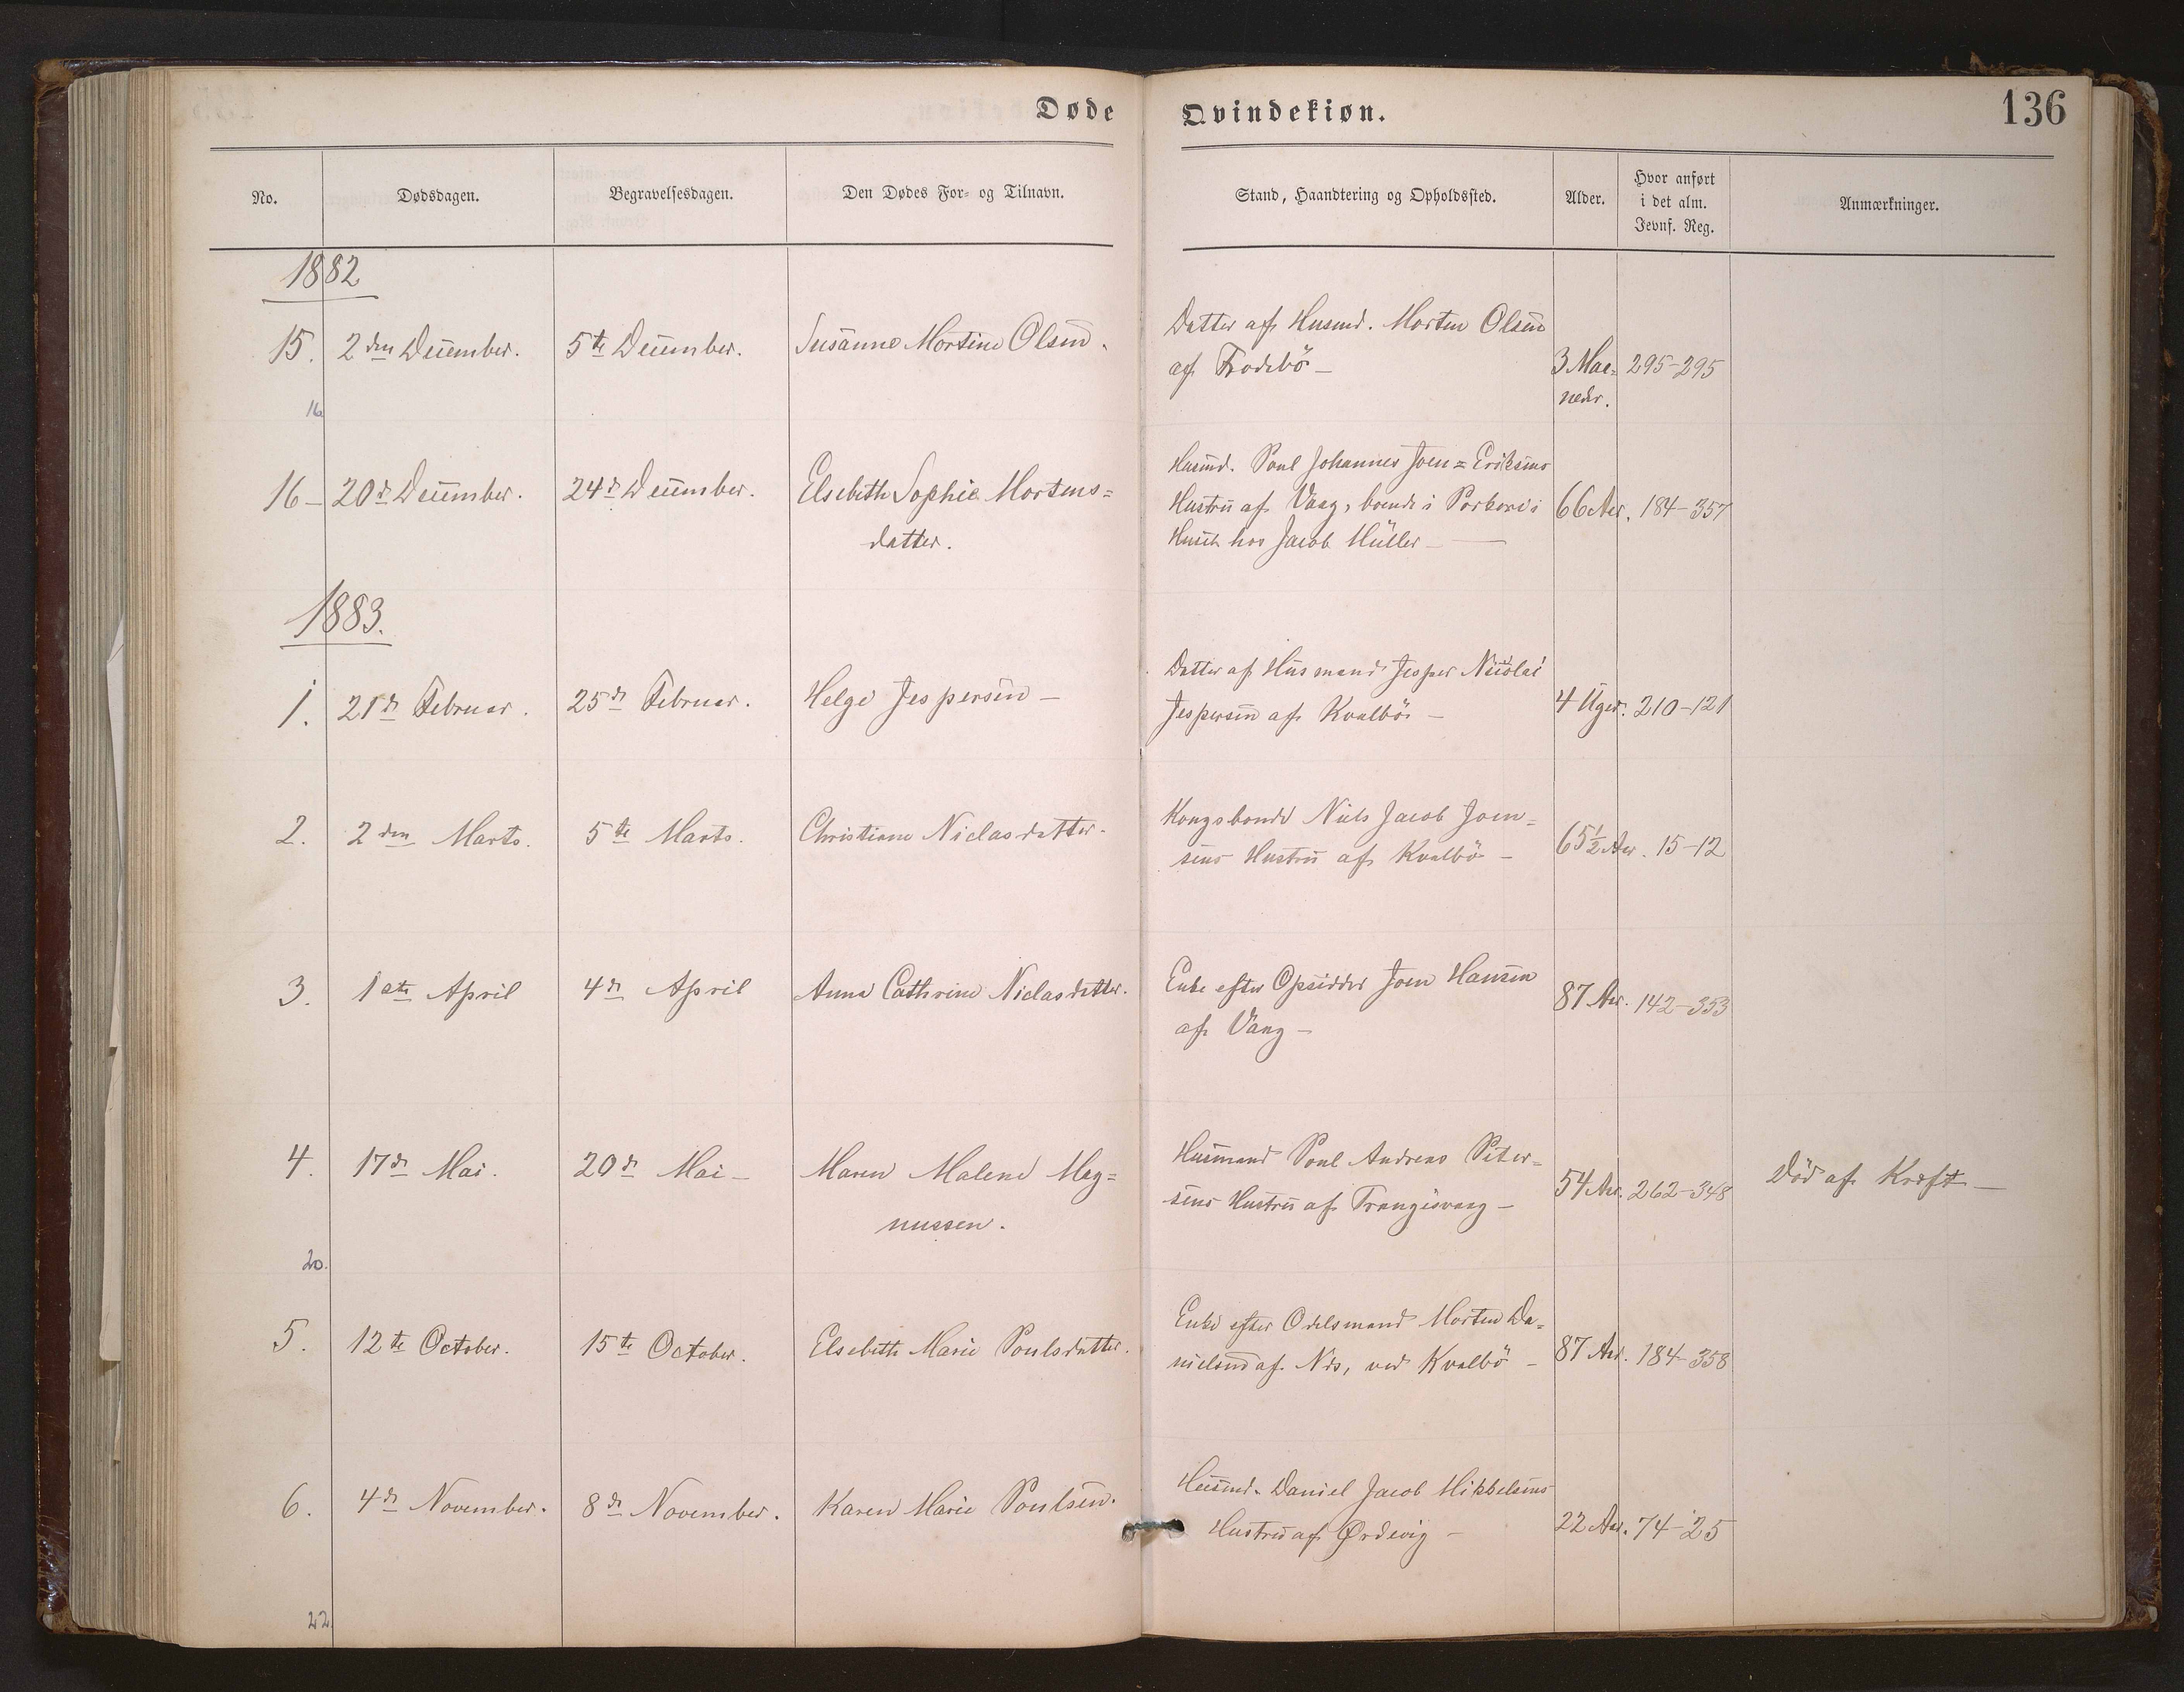 Døde Qvindekiøn. 136
No. Dødsdagen. Begravelsesdagen. Den Dødes For- og Tilnavn. Stand, Haandtering og Opholdssted. Alder. Hvor anført i det alm. Jevnf. Reg. Anmærkninger.
1882
15. 2den December. 5te December. Susanne Mortine Olsen. Datter af Husmd. Morten Olsen
af Frodebö — 3 Maa= 295-295
neder.
16
16 — 20de December. 24de December. Elsebeth Sophie Mortens= Husmd. Poul Johannes Joen=Eriksens
datter. Hustru af Vaag, boende i Porkeri i 66 Aar. 184-357
Huset hos Jacob Müller —
1883.
1. 21de Februar. 25de Februar. Helge Jespersen — Datter af Husmand Jesper Nicolai
Jespersen af Kvalbö — 4 Uger. 210-121
2. 2den Marts. 5te Marts. Christiane Niclasdatter. Kongsbonde Niels Jacob Joen=
sens Hustru af Kvalbö — 65½ Aar. 15-12
3. 1ste April 4de April Anna Cathrine Niclasdatter. Enke efter Opsidder Joen Hansen
af Vaag — 87 Aar. 142-353
4. 17de Mai. 20de Mai — Maren Malene Mag= Husmand Poul Andreas Peter=
nussen. sens Hustru af Trangisvaag — 54 Aar. 262-348 Död af Kræft —
20.
5. 12te October. 15te October. Elsebeth Marie Poulsdatter. Enke efter Odelsmand Morten Da=
nielsen af Nes, ved Kvalbö — 87 Aar. 184-358
6. 4de November. 8de November. Karen Marie Poulsen. Husmd. Daniel Jacob Mikkelsens
Hustru af Ørdevig — 22 Aar. 74-25
22